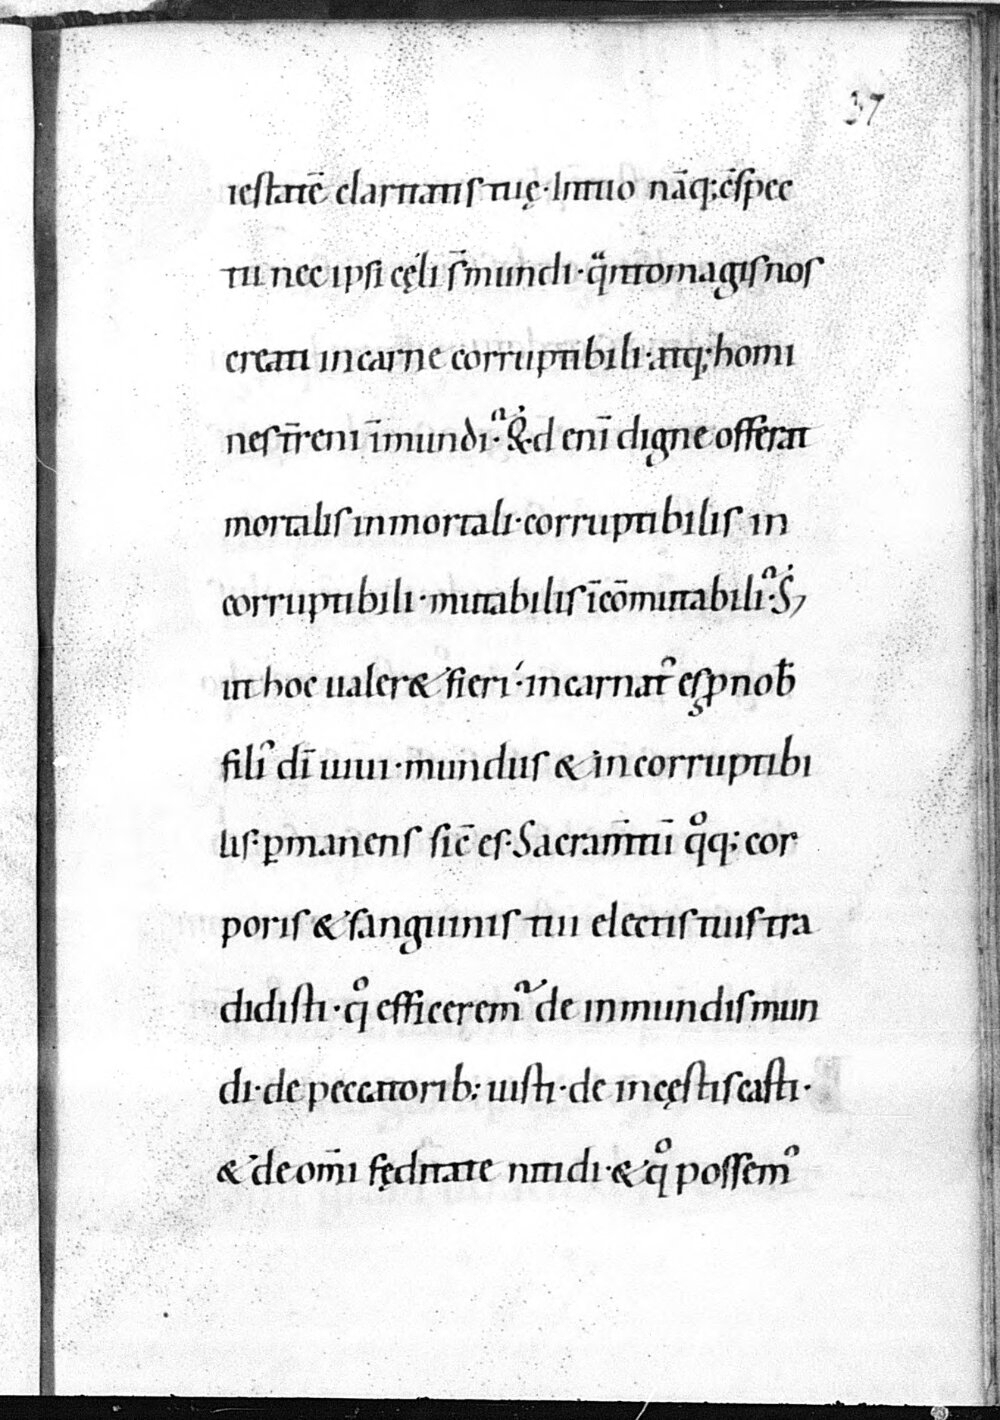 37
iestatē claritatis tuę· In tuo nāq; c̄spec
tu nec ipsi cęli s̄ mundi· qͣnto magis nos
creati in carne corruptibili· atq; homi
nes t̄reni īmundi· Qͥd eni digne offerat
mortalis inmortali· corruptibilis in
corruptibili· mutabilis īcōmutabili· S;
ut hoc ualer& fieri· incarnatꝰ es ꝓ nob̄
filiꝰ dī uiui· mundus & incorruptibi
lis· ꝑmanens sic̄ es· Sacram̄tū qͦq; cor
poris & sanguinis tui electis tuis tra
didisti· qͦ efficeremur de inmundis mun
di· de peccatorib; iusti· de incęstis casti·
& de om̄i fęditate nitidi· & qͦ possemꝰ